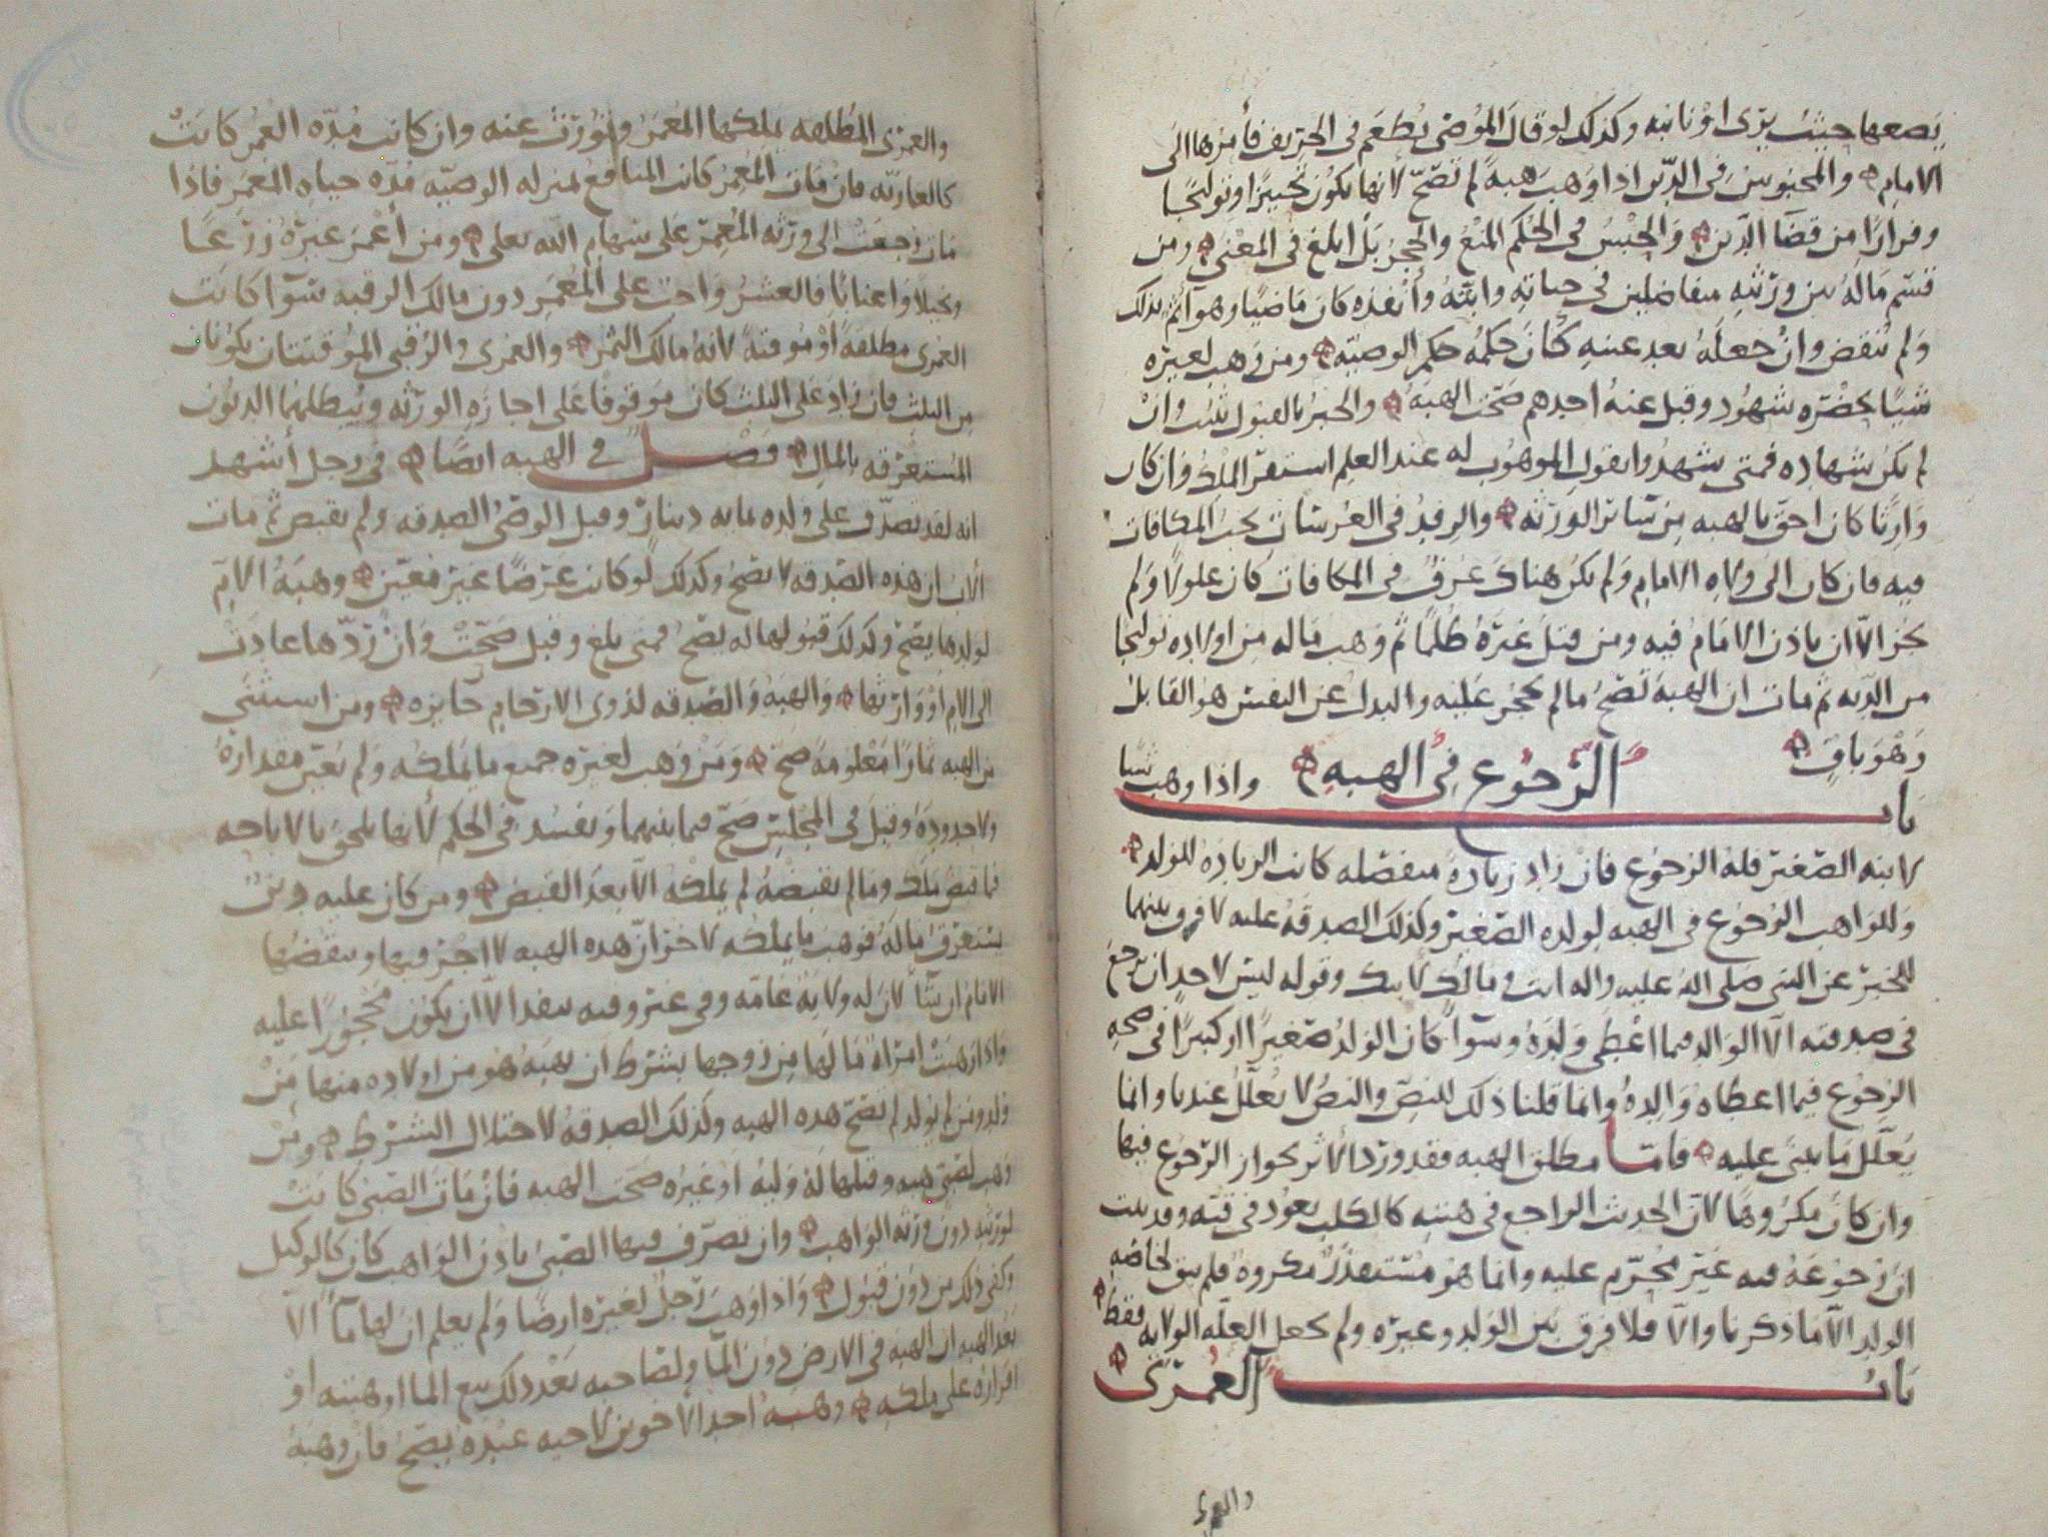 يضعها حيث يرى او نائبه وكذلك لو قال الموصى يطعم في الخريف فأمرها الى
الامام والمحبوس في الدين اذا وهب هبة لم تصح لأنها تكون تحييرا او توليجا
وفرارا من قضا الدين والحبس في الحكم المنع والحجر بل ابلغ في المعنى ومن
قسم ماله بين ورثته متفاضلين في حياته وابته وأنفذه كان ماضيا وهو آثم بذلك
ولم ينقض وان جعله بعد عينه كان حكمه حكم الوصيه ومن وهب لغيره
شيا بحضره شهود وقبل عنه احدهم صحت الهبه والخبر بالقبول يثبت وان
لم يكن شهاده فمتى شهدوا بقول الموهوب له عند العلم استقر الملك وان كان
وارثا كان احق بالهبه من سائر الورثه والرفد في العرسات يجب المكافات
فيه فان كان الى ولاه الامام ولم يكن هناك عرف في المكافات كان غلولا ولم
يجز الا ان ياذن الامام فيه ومن قتل غيره ظلما ثم وهب ماله من اولاده توليجا
من الديه ثم مات ان الهبه تصح مالم يحجر عليه والبدل عن النفس هو القابل
وهو باق
باب الرجوع في الهبه واذا وهب شيا
لابنه الصغير فله الرجوع فان زاد زيادة منفصله كانت الزياده للولد
وللواهب الرجوع في الهبه لولده الصغير وكذلك الصدقه عليه لا فرق بينهما
للخبر عن النبي صلى الله عليه واله انت ومالك لابيك وقوله ليس لاحد ان يرجع
في صدقته الا الوالد فيما اعطى ولده وسوآ كان الولد صغيرا او كبيرا في صحه
الرجوع فيما اعطاه والده وانما قلنا ذلك للنص والنص لا يعلل عندنا وانما
يعلل ما يبنى عليه فاما مطلق الهبه فقد ورد الاثر بجواز الرجوع فيها
وان كان مكروها لان الحديث الراجع في هبته كالكلب يعود في قيئه وقد ثبت
ان رجوعه فيه غير محرم عليه وانما هو مستقذر مكروه فلم يبق لخاصه
الولد الا ما ذكرنا والا فلا فرق بين الولد وغيره ولم يجعل العله الولايه فقط
باب العمرى
والعمرى
والعمرى المطلقه يملكها المعمر وتورث عنه وان كانت مده العمر كانت
كالعاريه فان مات المعمر كانت المنافع بمنزله الوصيه مده حياه المعمر فاذا
مات رجعت الى ورثه المعمر على سهام الله تعلى ومن أعمر غيره زرعا
ونخيلا واعنابا فالعشر واجب على المعمر دون مالك الرقبه سوآ كانت
العمرى مطلقه او موقته لانه مالك الثمر والعمرى والرقبى الموقتتان تكونان
من الثلث فان زاد على الثلث كان موقوفا على اجازه الورثه ويبطلهما الديون
المستغرقه بالمال فصل في الهبه ايضا في رجل أشهد
انه لقد تصدق على ولده بمايه دينار وقبل الوصى الصدقه ولم يقبض ثم مات
الاب ان هذه الصدقه لا تصح وكذلك لو كانت عرضا غير معين وهبه الام
لولدها يصح وكذلك قبولها له يصح فمتى بلغ وقبل صحت وان ردها عادت
الى الام او وارثها والهبه والصدقه لذوى الارحام جايزه ومن استثنى
من الهبه ثمارا معلومة صح ومن وهب لغيره جميع ما يملكه ولم يعين مقداره
ولا حدوده وقبل في المجلس صح فيما بينهما ويفسد في الحكم لأنها تلحق بالاباحه
فما قبض ملك ومالم يقبضه لم يملكه الا بعد القبض ومن كان عليه دين
يستغرق ماله فوهب ما يملكه لاخر ان هذه الهبه لا اجر فيها وينقضها
الامام ان شا لان له ولاية عامه وفي غير وقته ينفذ الا ان يكون محجورا عليه
واذا وهبت امرأة مالها من زوجها بشرط ان يهبه هو من اولاده منها من
ولد ومن لم يولد لم تصح هذه الهبه وكذلك الصدقه لاختلال الشرط ومن
وهب لصبى هبه وقبلها له وليه او غيره صحت الهبه فان مات الصبى كانت
لورثته دون ورثه الواهب وان تصرف فيها الصبى باذن الواهب كان كالوكيل
وكفى ذلك من دون قبول واذا وهب رجل لغيره ارضا ولم يعلم ان لها مآ الا
بعد الهبه ان الهبه في الارض دون المآ ولصاحبه بعد ذلك بيع الما او هبته او
اقراره على ملكه وهبه احد الاخوين لاخيه عبده يصح فان وهبه